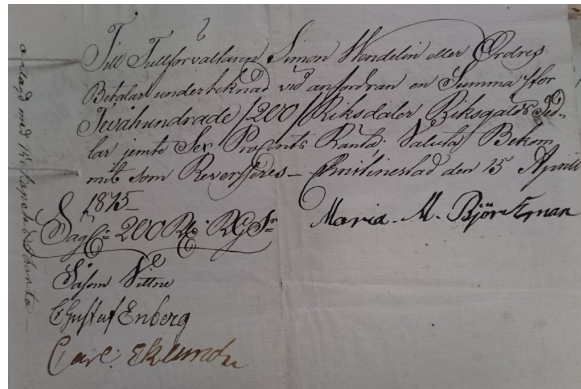 Till Tullförvaltaren Simon Wendelin eller Ordres
Betalar undertecknad vid anfordran en Summa stor
Tvåhundrade /200/ Riksdaler Riksgälds Sed-
lar jemte Sex Procents Ränta; Valuta Bekom-
mit som Reverseres – Christinestad den 15 April
1815
Säg 200 Rd RGS
Maria. M. Björkman
Såsom Vittne
Gustaf Enberg
Carl Eklund